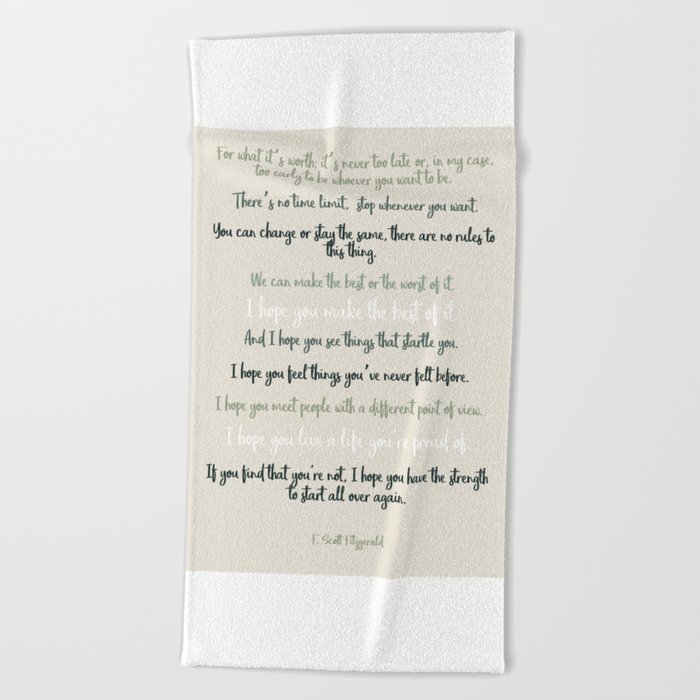 For what it's worth: it's never too late or, in my case,
too early to be whoever you want to be.
There's no time limit, stop whenever you want.
You can change or stay the same, there are no rules to
this thing.
We can make the best or the worst of it.
I hope you make the best of it.
And I hope you see things that startle you.
I hope you feel things you've never felt before.
I hope you meet people with a different point of view.
I hope you live a life you're proud of.
If you find that you're not, I hope you have the strength
to start all over again.
F. Scott Fitzgerald